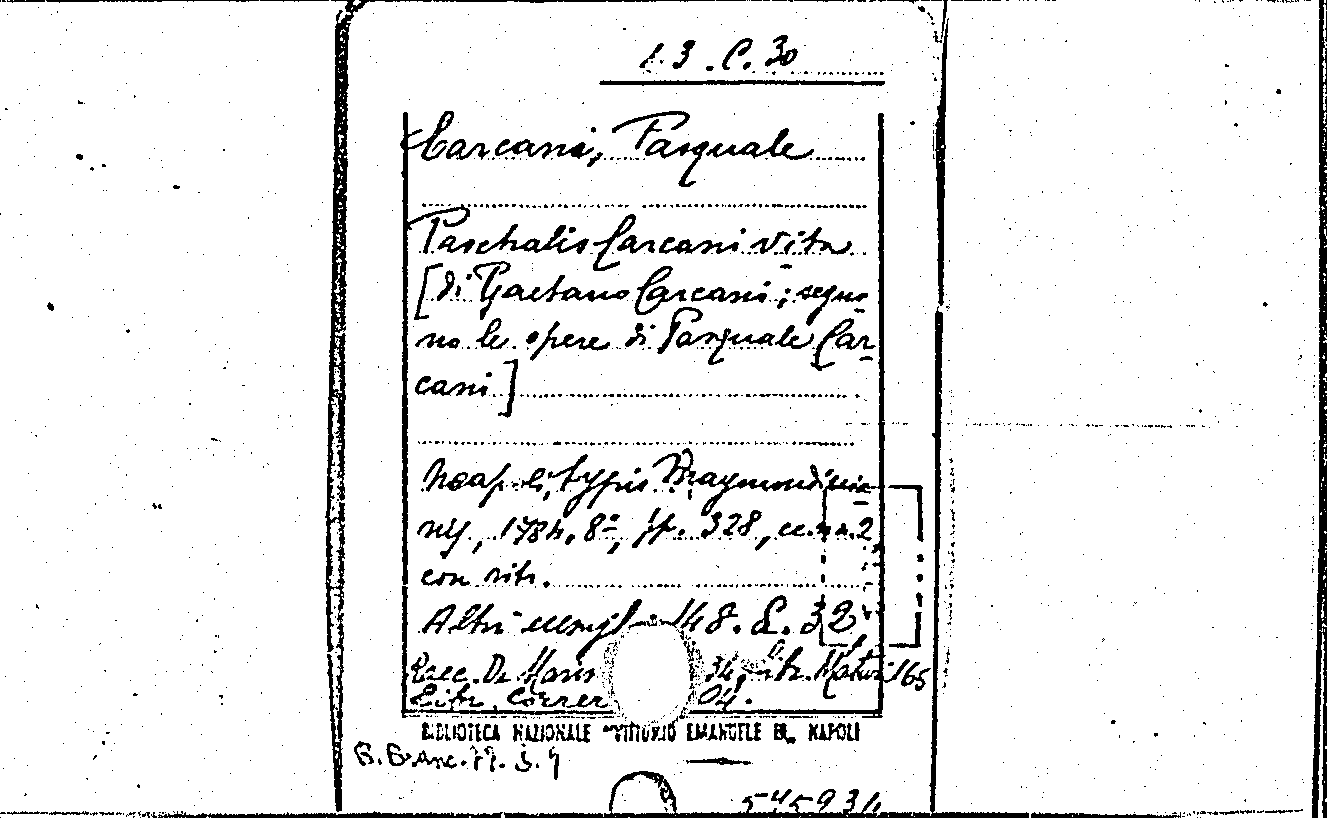 13.C.30
Carcani, Pasquale
Paschalis Carcani vita
[di Gaetano Carcani; segue
no le opere di Pasquale Car-
cani]
Neapoli, typis Raymundinia
nis, 1784, 8º, pp. 328, cc. nn. 2,
con ritr.
Altri esempl. 148. E. 32
Racc. De Maris 34, Mator 165
Libr. Correr 04.
BIBLIOTECA NAZIONALE "VITTORIO EMANUELE III" NAPOLI
B. Branc. 77. 3. 9
545934